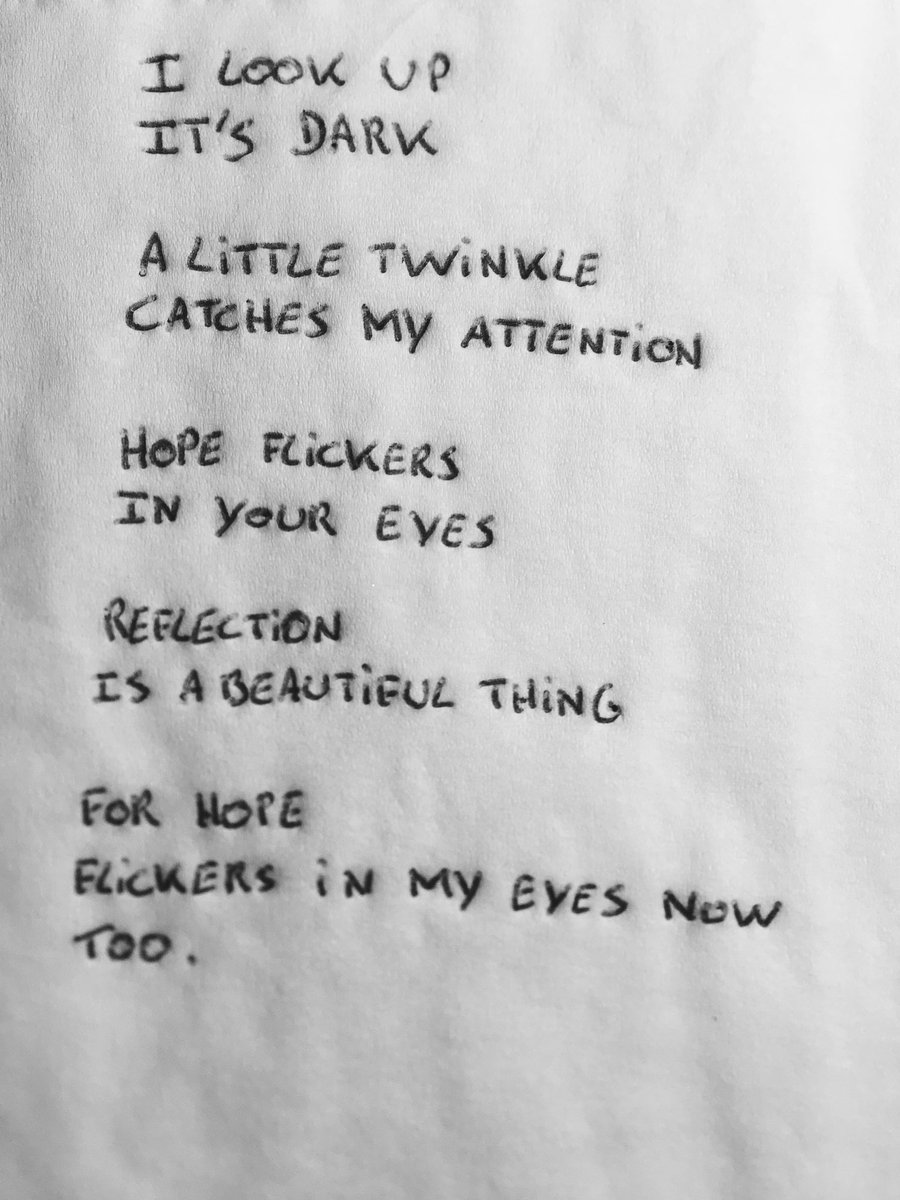 I LOOK UP
IT'S DARK
A LiTTLE TWiNKLE
CATCHES MY ATTENTiON
HOPE FLiCKERS
IN YOUR EYES
REFLECTiON
IS A BEAUTiFUL THiNG
FOR HOPE
FLiCKERS iN MY EYES NOW
TOO.